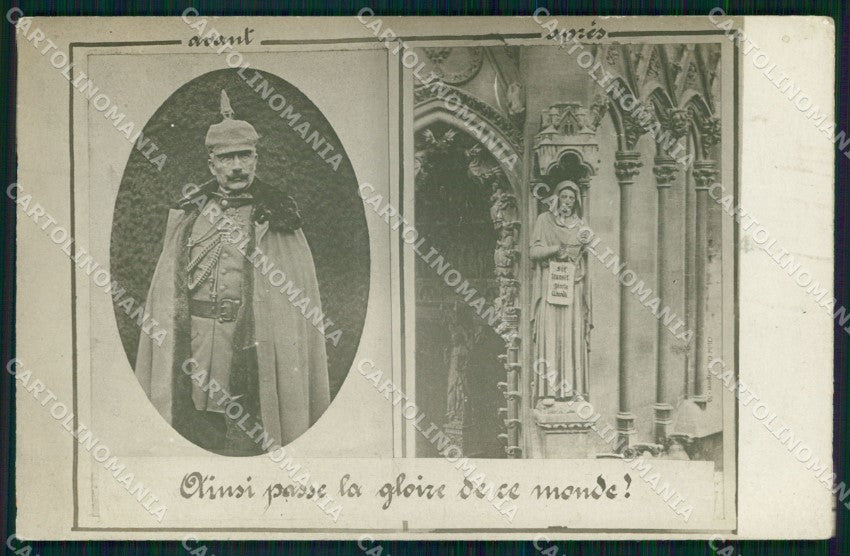 avant
après
Sic
transit
gloria
Mundi
Ainsi passe la gloire de ce monde!
CARTOLINOMANIA